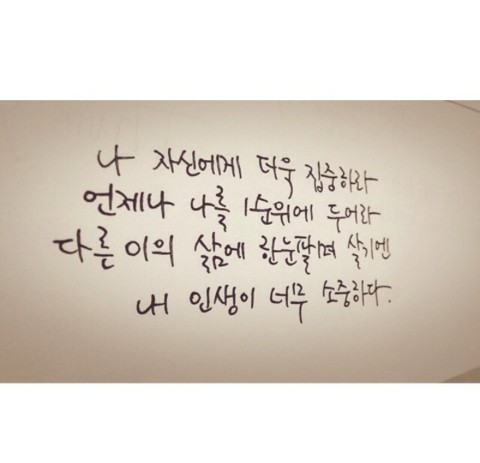 나 자신에게 더욱 집중하라
언제나 나를 1순위에 두어라
다른 이의 삶에 한눈팔며 살기엔
내 인생이 너무 소중하다.